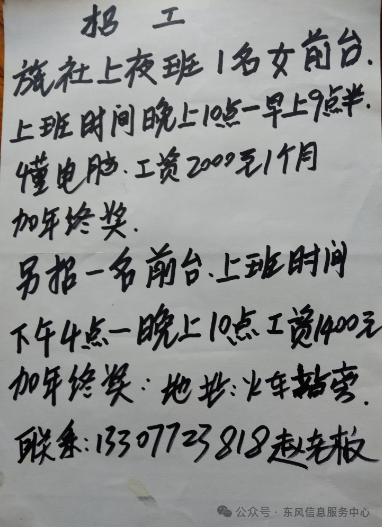 招 工
旅社上夜班1名女前台.
上班时间晚上10点一早上9点半
懂电脑.工资2000元1个月
加年终奖.
另招一名前台.上班时间
下午4点一晚上10点工资1400元
加年终奖.地址:火车站旁.
联系:13307723818赵老板
公众号·东风信息服务中心